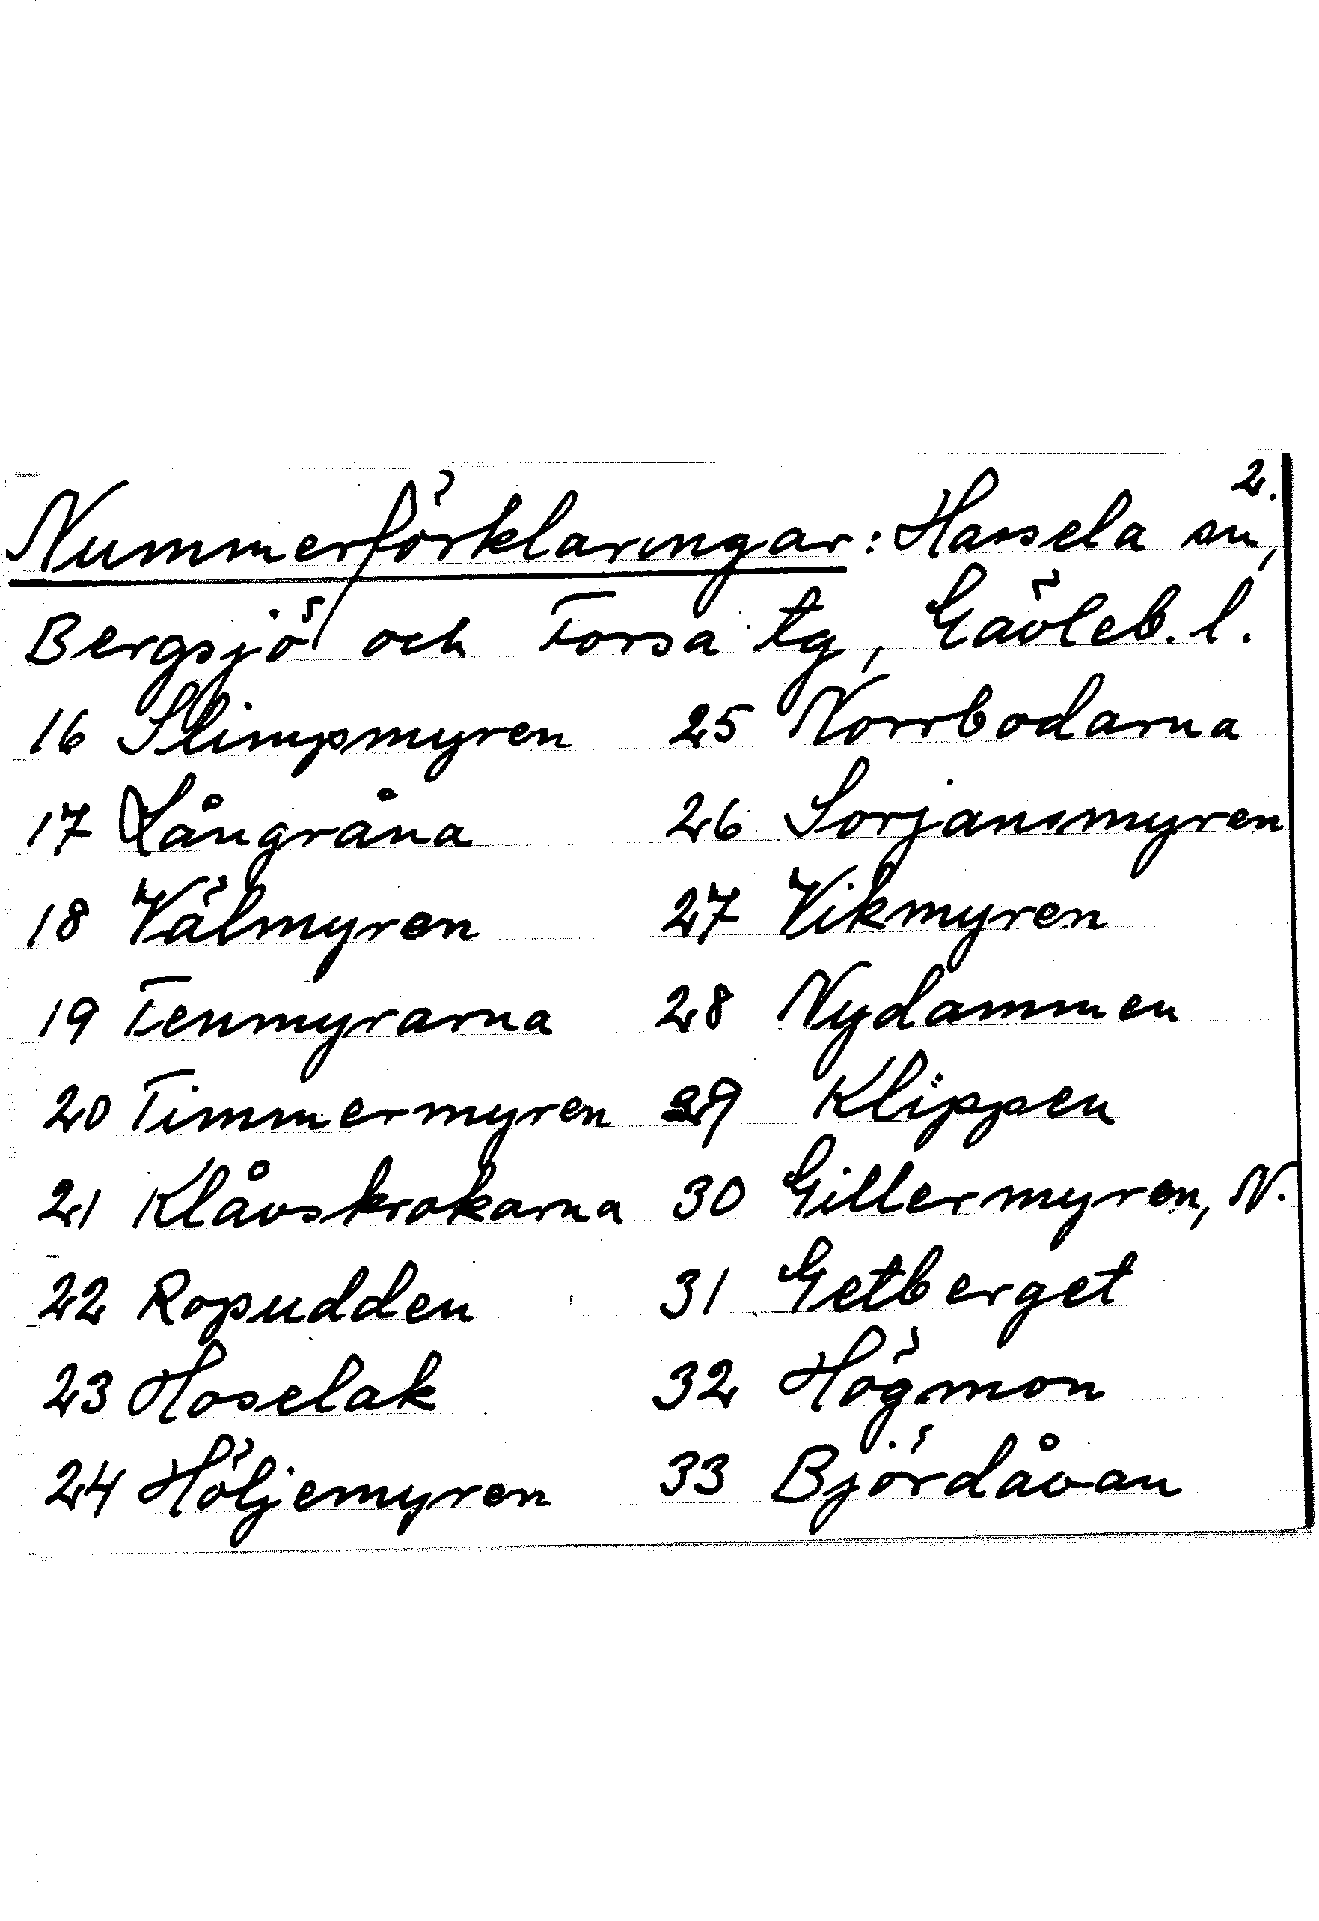 2.
Nummerförklaringar: Hassela sn,
Bergsjö och Forsa tg, Gävleb. l.
16 Slimpmyren 25 Norrbodarna
17 Långråna 26 Sorjansmyren
18 Välmyren 27 Vikmyren
19 Fenmyrarna 28 Nydammen
20 Timmermyren 29 Klippen
21 Klåvskrokarna 30 Gillermyren, N.
22 Ropudden 31 Getberget
23 Hoselak 32 Högmon
24 Höljemyren 33 Björdåvan